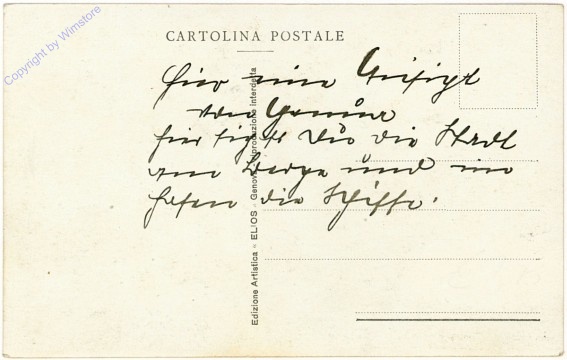 Copyright by Wimstore
CARTOLINA POSTALE
Hier eine Ansicht
von Genua
hier siehst Du die Stadt
am Berge und im
Hafen die Schiffe.
Edizione Artistica - ELIOS - Genova - Riproduzione interdetta